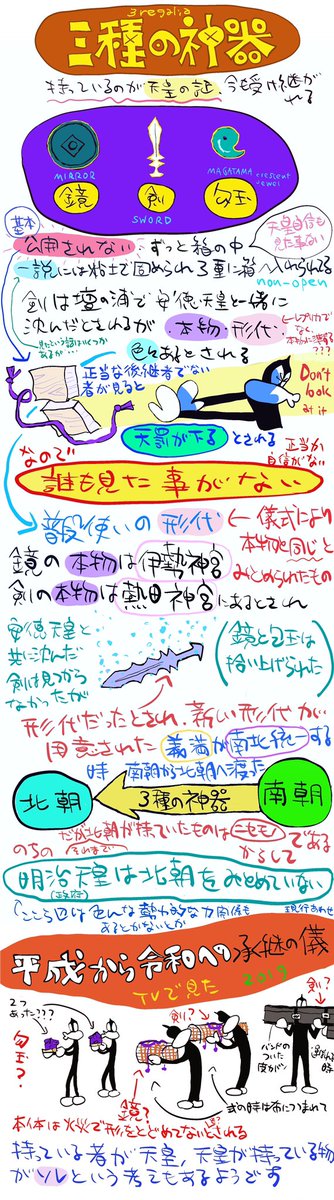 3regalia
三種の神器
持っているのが天皇の証
今も受け継がれる
MIRROR
鏡
SWORD
剣
MAGATAMA
crescent jewel
勾玉
基本
公開されない ずっと箱の中
天皇自信も見た事ない
一説には粘土で固められ3重に箱へ入れられてる
non-open
剣は壇の浦で安徳天皇と一緒に
沈んだとされるが 本物 形代
色々あるとされる
正当な後継者でない
者が見ると
Don't look at it
天罰が下る とされる
正当か自信がない
なので
誰も見た事がない
普段使いの形代
←儀式により
本物と同じと
みとめられたもの
鏡の本物は伊勢神宮
剣の本物は熱田神宮にあるとされ
安徳天皇と
共に沈んだ
剣は見つから
なかったが
(鏡と勾玉は
拾い上げられた)
形代だったとされ、新しい形代が
用意された
義満が南北統一する
時 南朝から北朝へ渡った
北朝
3種の神器
南朝
だが北朝が持ていたものはニセモノである
のちの
からして
明治天皇は北朝をみとめていない
(政府)
平成から令和への承継の儀
TVで見た
2019
2つあった???
勾玉?
鏡?
剣?
剣?
バンドのついた皮がバン
式の時は布につつまれて
本体は火災で形をとどめてないとされる
持っている者が天皇、天皇が持っている物
がソレという考えもあるようです